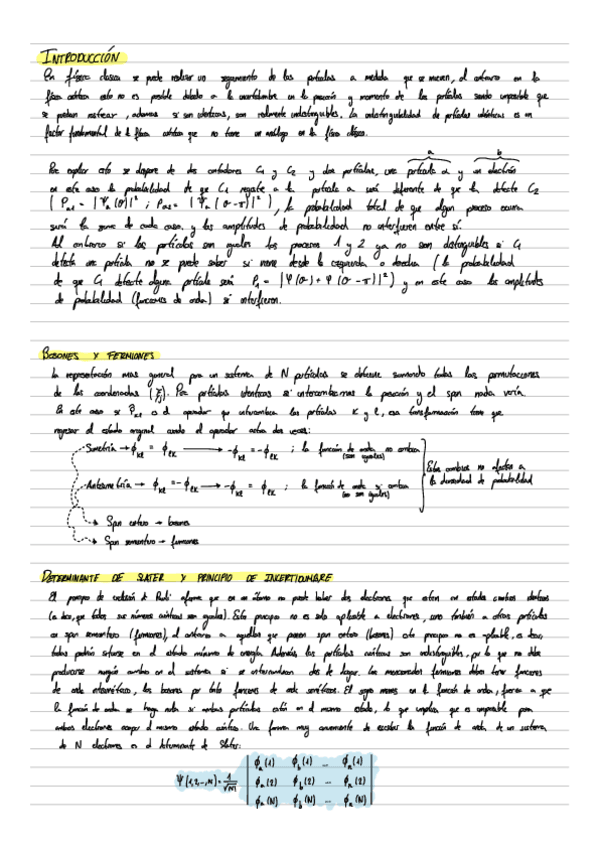 INTRODUCCIÓN
En física clásica se puede realizar un seguimiento de las partículas a medida que se mueven, al contrario en la
física cuántica esto no es posible debido a la incertidumbre en la posición y momento de las partículas siendo imposible que
se puedan rastrear, además si son idénticas, son realmente indistinguibles. La indistinguibilidad de partículas idénticas es un
factor fundamental de la física cuántica que no tiene un análogo en la física clásica.
a b
Para explicar esto se dispone de dos contadores C₁ y C₂ y dos partículas, una partícula α y un electrón
en este caso la probabilidad de que C₁ registre a la partícula a será diferente de que la detecte C₂
la probabilidad total de que algun proceso ocurra
será la suma de cada caso, y las amplitudes de probabilidad no interfieren entre sí.
Al contrario si las partículas son iguales los procesos 1 y 2 ya no son distinguibles si C₁
detecta una partícula no se puede saber si viene desde la izquierda o derecha (la probabilidad
de que C₁ detecte alguna partícula será P₁ = |Ψ(θ) + Ψ(θ-π)|²) y en este caso las amplitudes
de probabilidad (funciones de onda) si interfieren.
BOSONES Y FERMIONES
La representación más general para un sistema de N partículas se obtiene sumando todas las permutaciones
de las coordenadas. Para partículas idénticas si intercambiamos la posición y el spin nada varía.
En este caso si es el operador que intercambia las partículas K y l, esa transformación tiene que
regresar al estado original cuando el operador actúa dos veces:
Simetría → ϕkl = ϕlk → -ϕkl = -ϕlk ; la función de onda no cambia
(son iguales)
Antisimetría → ϕkl = -ϕlk → -ϕkl = ϕlk ; la función de onda si cambia
(no son iguales)
Este cambio no afecta a
la densidad de probabilidad
Spin entero → bosones
Spin semientero → fermiones
DETERMINANTE DE SLATER Y PRINCIPIO DE INCERTIDUMBRE
El principio de exclusión de Pauli afirma que en un átomo no puede haber dos electrones que estén en estados cuánticos idénticos
(es decir, que todos sus números cuánticos son iguales). Este principio no es solo aplicable a electrones, sino también a otras partículas
con spin semientero (fermiones), al contrario a aquellas que poseen spin entero (bosones) este principio no es aplicable, es decir,
todas podrán situarse en el estado mínimo de energía. Además las partículas cuánticas son indistinguibles, por lo que no debe
producirse ningún cambio en el sistema si se intercambian dos de lugar. Los mencionados fermiones deben tener funciones
de onda antisimétricas, los bosones por tanto funciones de onda simétricas. El signo menos en la función de onda, fuerza a que
la función de onda se haga nula si ambas partículas están en el mismo estado, lo que implica que es imposible para
ambos electrones ocupar el mismo estado cuántico. Una forma muy conveniente de escribir la función de onda de un sistema
de N electrones es el determinante de Slater:
ϕₐ(1) ϕb(1) ... ϕₙ(1)
Ψ(1,2,...,N) = 1/√N! ϕₐ(2) ϕb(2) ... ϕₙ(2)
ϕₐ(N) ϕb(N) ... ϕₙ(N)